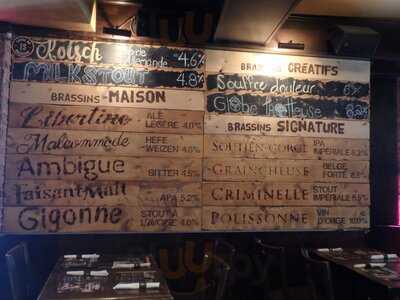 Kölsch 4.6%
MILKSTOUT 4.8%
BRASSINS - MAISON
Libertine ALE LÉGÈRE 4.0%
Malcommode HEFE-WEIZEN
Ambigue BITTER 4.5%
Faisant Malt APA 5.2%
Gigonne STOUT À L'AVOINE
BRASSINS CRÉATIFS
Souffre douleur
Globe Trotteuse
BRASSINS SIGNATURE
SOUTIEN-GORGE IPA IMPÉRIALE
GRAINCHEUSE BELGE FORTE
CRIMINELLE STOUT IMPÉRIALE
POLISSONNE VIN D'ORGE 10.0%